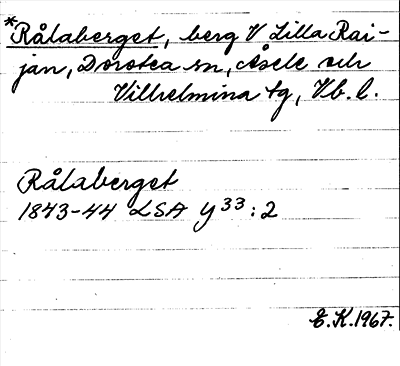 *Rålaberget, berg V Lilla Rai-
jan, Dorotea sn, Åsele och
Vilhelmina tg, Vb. l.
Rålaberget
1843-44 LSA Y33:2
E.K.1967.